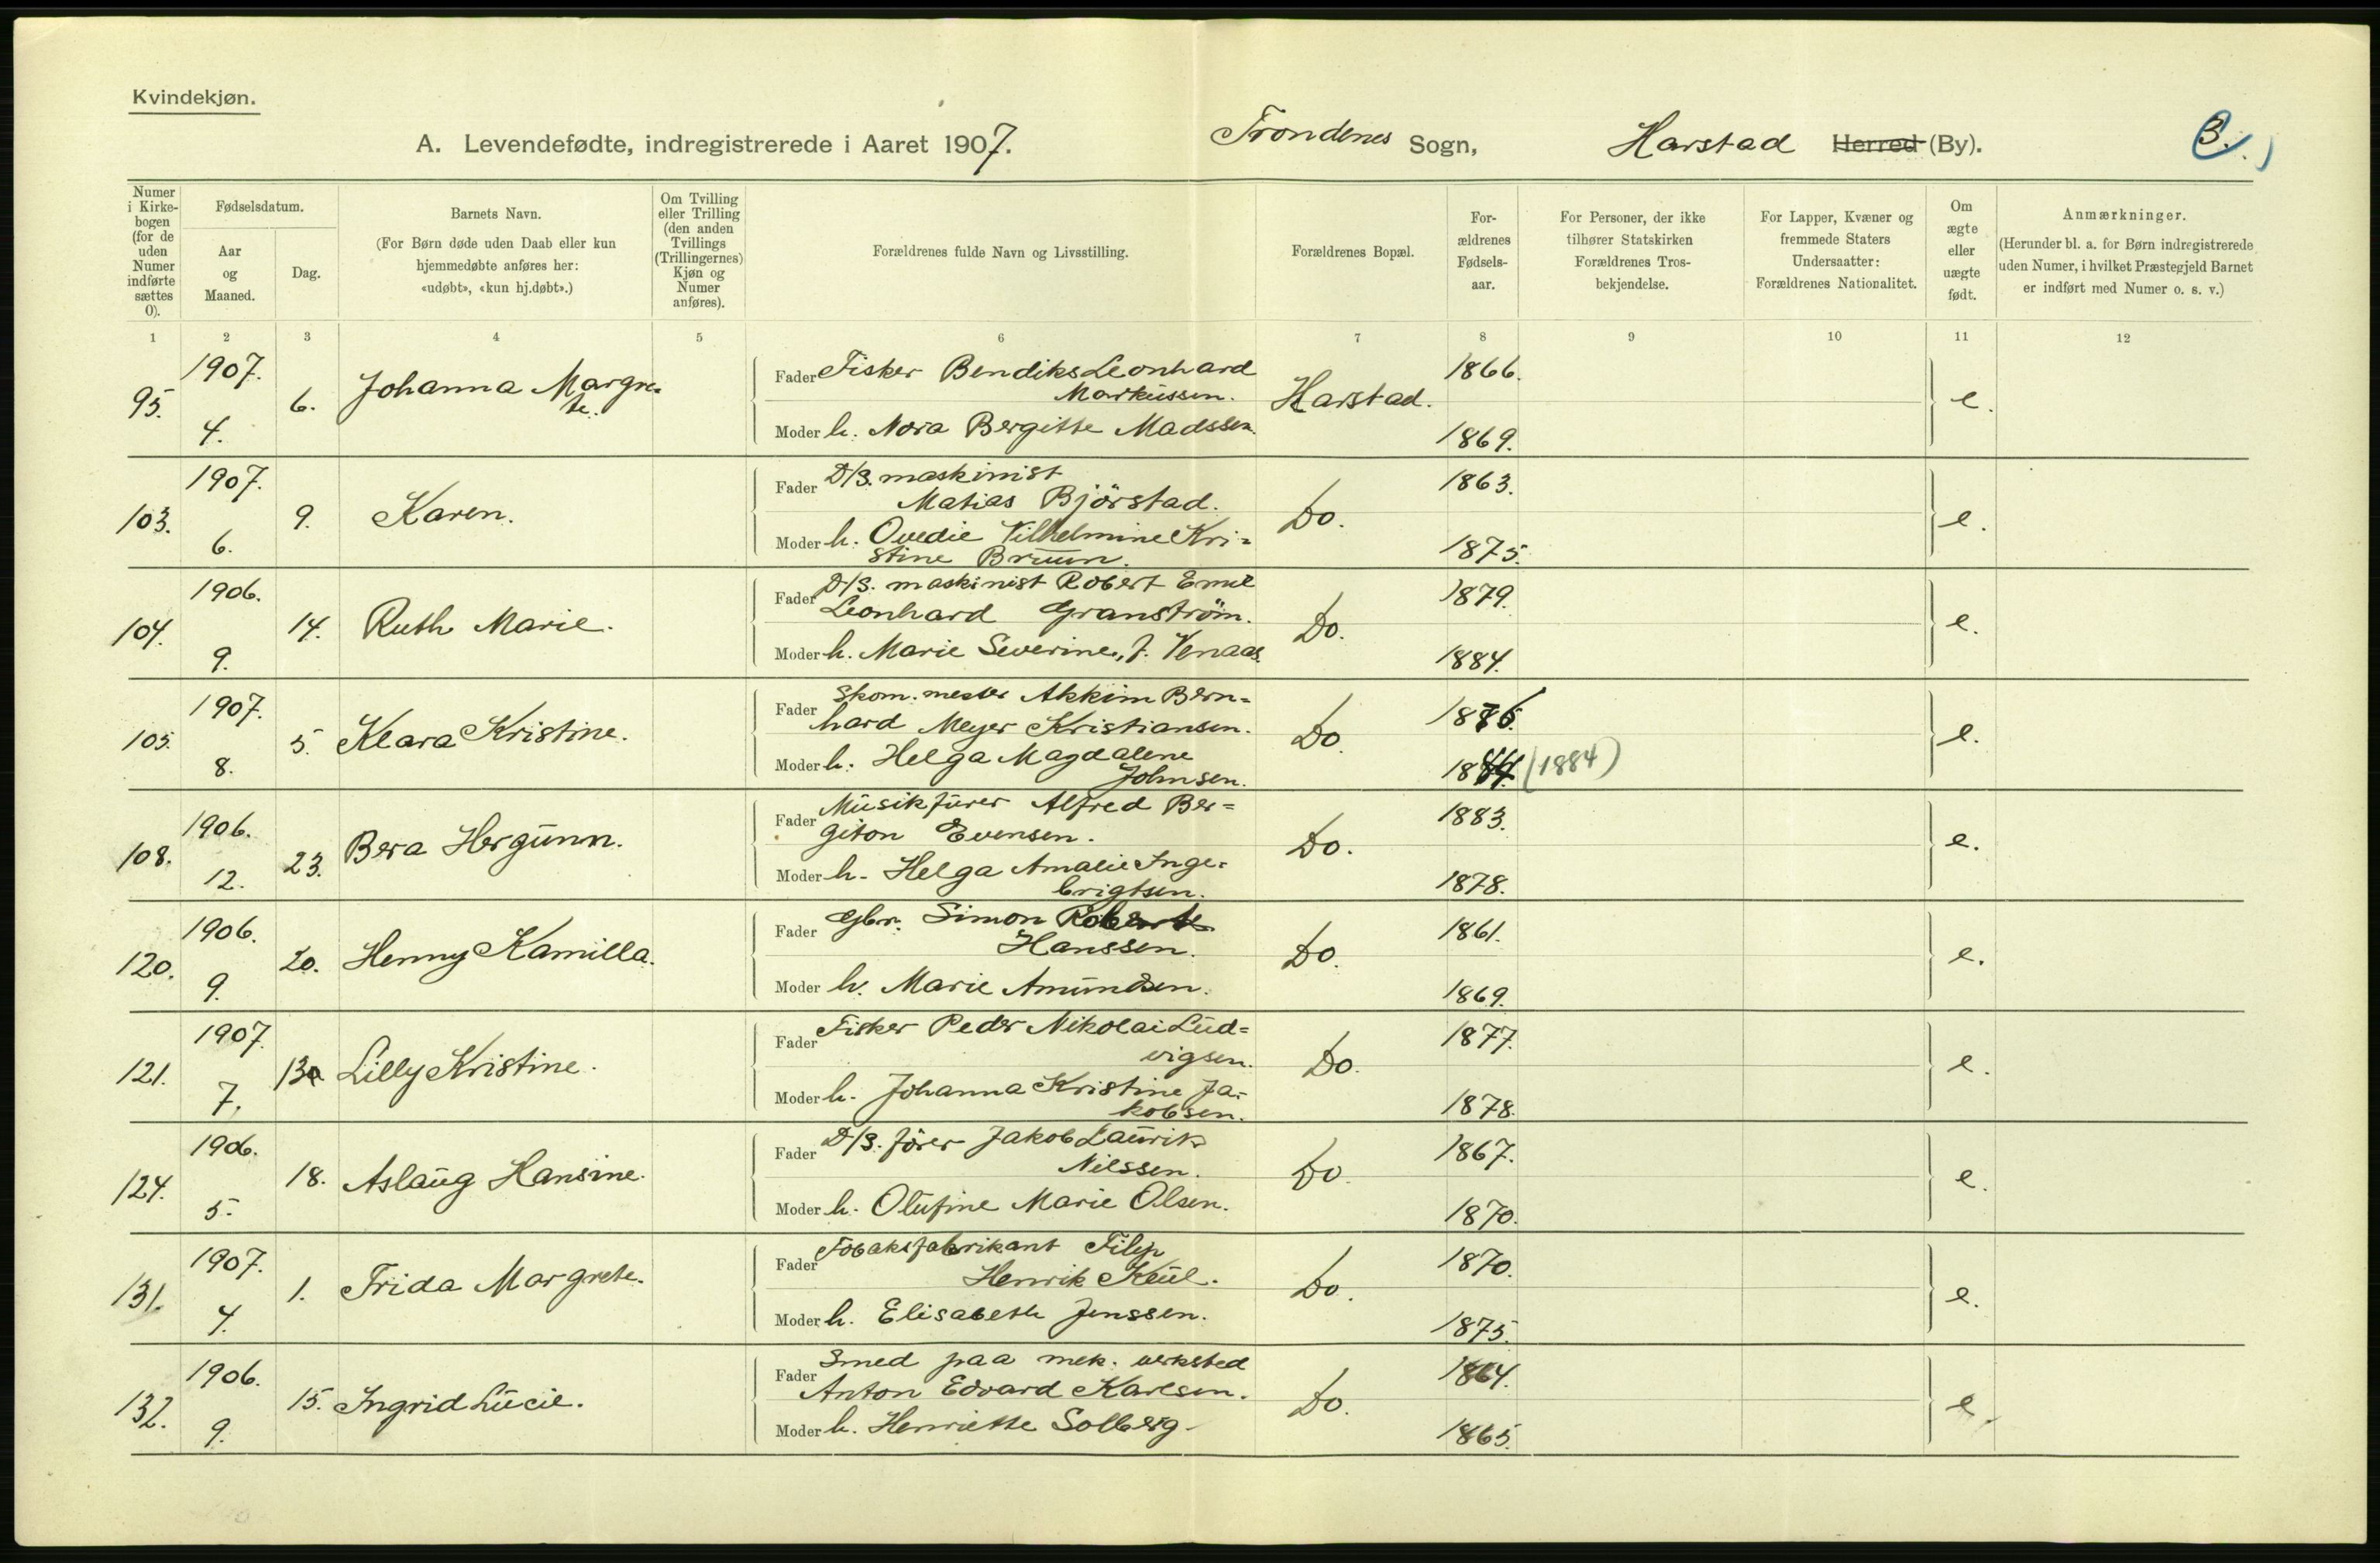 Kvindekjøn.
A. Levendefødte, indregistrerede i Aaret 1907. Trondenes Sogn, Harstad Herred (By). 3.
Numer i Kirke-bogen (for de uden Numer indførte sættes 0).
Fødselsdatum.
Aar og Maaned.
Dag.
Barnets Navn.
(For Børn døde uden Daab eller kun
hjemmedøbte anføres her:
«udøbt», «kun hj.døbt».)
Om Tvilling
eller Trilling
(den anden
Tvillings
(Trillingernes)
Kjøn og
Numer
anføres).
Forældrenes fulde Navn og Livsstilling.
Forældrenes Bopæl.
For-
ældrenes
Fødsels-
aar.
For Personer, der ikke
tilhører Statskirken
Forældrenes Tros-
bekjendelse.
For Lapper, Kvæner og
fremmede Staters
Undersaatter:
Forældrenes Nationalitet.
Om
ægte
eller
uægte
født.
Anmærkninger.
(Herunder bl. a. for Børn indregistrerede
uden Numer, i hvilket Præstegjeld Barnet
er indført med Numer o. s. v.)
1 2 3 4 5 6 7 8 9 10 11 12
95. 1907. 4. 6. Johanna Margre=
te.
Fader Fisker Bendiks Leonhard
Markussen.
Moder h. Nora Bergitte Madssen.
Harstad. 1866. 1869. e.
103. 1907. 6. 9. Karen.
Fader D/S. maskinist
Matias Björstad.
Moder h. Ovedie Vilhelmine Kri=
stine Bruun.
Do. 1863. 1875. e.
104. 1906. 9. 14. Ruth Marie.
Fader D/S. maskinist Robert Emil
Leonhard Granström.
Moder h. Marie Severine, f. Venaas.
Do. 1879. 1884. e.
105. 1907. 8. 5. Klara Kristine.
Fader Skom. mester Akkim Bern=
hard Meyer Kristiansen.
Moder h. Helga Magdalene
Johnsen.
Do. (1884) e.
108. 1906. 12. 23. Bera Hergunn.
Fader Musikfürer Alfred Ber=
giton Evensen.
Moder h. Helga Amalie Inge=
brigtsen.
Do. 1883. 1878. e.
120. 1906. 9. 20. Henny Kamilla.
Fader Gbr. Simon
Hanssen.
Moder h. Marie Amundsen.
Do. 1861. 1869. e.
121. 1907. 7. 13 Lilly Kristine.
Fader Fisker Peder Nikolai Lud=
vigsen.
Moder h. Johanna Kristine Ja=
kobsen.
Do. 1877. 1878. e.
124. 1906. 5. 18. Aslaug Hansine.
Fader D/S. förer Jakob Laurits
Nilssen.
Moder h. Olufine Marie Olsen.
Do. 1867. 1870. e.
131. 1907. 4. 1. Frida Margrete.
Fader Tobaksfabrikant Filip
Henrik Keul.
Moder h. Elisabeth Jenssen.
Do. 1870. 1875. e.
132. 1906. 9. 15. Ingrid Lucie.
Fader Smed paa mek. verksted
Anton Edvard Karlsen.
Moder h. Henriette Solberg.
Do. 1864. 1865. e.